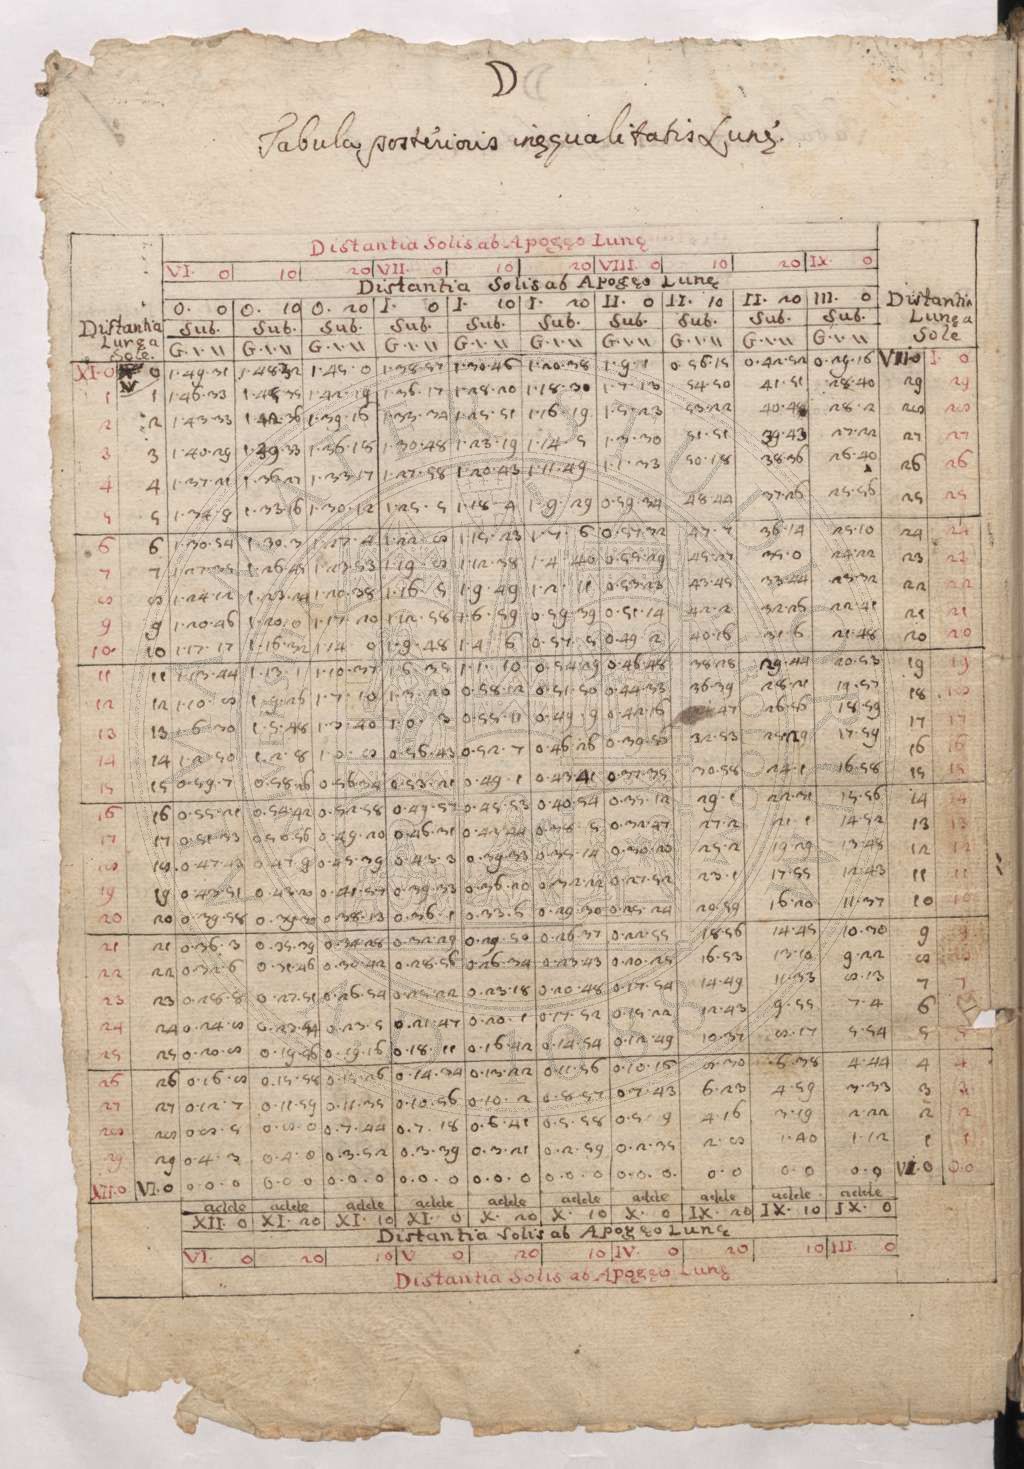 D
Tabula posterioris inęqualitatis Lunę.
Distantia Solis ab Apogęo Lunę
VI. 0 10 20 VII. 0 10 20 VIII. 0 10 20 IX. 0
Distantia Solis ab Apogęo Lunę
0. 0 0. 10 0. 20 I. 0 I. 10 I. 20 II. 0 II. 10 II. 20 III. 0
Distantia Lunę a Sole.
Sub. Sub. Sub. Sub. Sub. Sub. Sub. Sub. Sub. Sub.
Distantia Lunę a Sole
XI. 0 0 1.49.31 1.48.32 1.45.0 1.38.57 1.30.46 1.20.38 1.9.1 0.56.15 0.42.52 0.29.16 VIII. 0 I. 0
1 1 1.46.33 1.42.19 1.36.17 1.28.20 1.18.30 1.7.13 54.50 41.51 28.40 29 29
2 2 1.43.33 1.42.36 1.39.16 1.33.34 1.25.51 1.16.19 1.5.23 53.22 40.48 28.2 28 28
3 3 1.40.29 1.39.33 1.36.18 1.30.48 1.23.19 1.14.5 1.3.30 51.51 39.43 27.22 27 27
4 4 1.37.21 1.36.27 1.33.17 1.27.58 1.20.43 1.11.49 1.1.33 50.18 38.36 26.40 26 26
5 5 1.34.9 1.33.16 1.30.12 1.25.5 1.18.4 1.9.29 0.59.34 48.44 37.26 25.56 25 25
6 6 1.30.54 1.30.3 1.27.4 1.22.8 1.15.23 1.7.6 0.57.32 47.7 36.14 25.10 24 24
7 7 1.27.35 1.26.45 1.23.53 1.19.8 1.12.38 1.4.40 0.55.29 45.27 35.0 24.22 23 23
8 8 1.24.12 1.23.24 1.20.38 1.16.5 1.9.49 1.2.11 0.53.23 43.45 33.44 23.32 22 22
9 9 1.20.46 1.20.0 1.17.20 1.12.58 1.6.59 0.59.39 0.51.14 42.2 32.26 22.41 21 21
10 10 1.17.17 1.16.32 1.14.0 1.9.48 1.4.6 0.57.5 0.49.2 40.16 31.6 21.48 20 20
11 11 1.13.44 1.13.1 1.10.37 1.6.35 1.1.10 0.54.29 0.46.48 38.28 29.44 20.53 19 19
12 12 1.10.8 1.9.26 1.7.10 1.3.20 0.58.12 0.51.50 0.44.33 36.39 28.21 19.57 18 18
13 13 1.6.30 1.5.48 1.3.40 1.0.3 0.55.11 0.49.9 0.42.16 47 26.56 18.59 17 17
14 14 1.2.50 1.2.8 1.0.8 0.56.43 0.52.7 0.46.26 0.39.56 32.53 25.29 17.59 16 16
15 15 0.59.7 0.58.26 0.56.34 0.53.21 0.49.1 0.43.41 0.37.35 30.58 24.1 16.58 15 15
16 16 0.55.21 0.54.42 0.52.58 0.49.57 0.45.53 0.40.54 0.35.12 29.1 22.31 15.56 14 14
17 17 0.51.33 0.50.56 0.49.20 0.46.31 0.42.44 0.38.5 0.32.47 27.2 21.1 14.52 13 13
18 18 0.47.43 0.47.9 0.45.39 0.43.3 0.39.33 0.35.14 0.30.20 25.2 19.29 13.48 12 12
19 19 0.43.51 0.43.20 0.41.57 0.39.33 0.36.20 0.32.22 0.27.52 23.1 17.55 12.43 11 11
20 20 0.39.58 0.39.30 0.38.13 0.36.1 0.33.5 0.29.30 0.25.24 20.59 16.20 11.37 10 10
21 21 0.36.3 0.35.39 0.34.28 0.32.29 0.29.50 0.26.37 0.22.55 18.56 14.45 10.30 9 9
22 22 0.32.6 0.31.46 0.30.42 0.28.56 0.26.34 0.23.43 0.20.25 16.53 13.10 9.22 8 8
23 23 0.28.8 0.27.51 0.26.54 0.25.22 0.23.18 0.20.48 0.17.54 14.49 11.33 8.13 7 7
24 24 0.24.8 0.23.54 0.23.5 0.21.47 0.20.1 0.17.52 0.15.22 12.43 9.55 7.4 6
25 25 0.20.8 0.19.56 0.19.16 0.18.11 0.16.42 0.14.54 0.12.49 10.37 8.17 5.54 5 5
26 26 0.16.8 0.15.58 0.15.26 0.14.34 0.13.22 0.11.56 0.10.16 8.30 6.38 4.44 4 4
27 27 0.12.7 0.11.59 0.11.35 0.10.56 0.10.2 0.8.57 0.7.43 6.23 4.59 3.33 3 3
28 28 0.8.5 0.8.0 0.7.44 0.7.18 0.6.41 0.5.58 0.5.9 4.16 3.19 2.22 2 2
29 29 0.4.3 0.4.0 0.3.52 0.3.39 0.3.21 0.2.59 0.2.35 2.8 1.40 1.12 1 1
XII. 0 VI. 0 0.0.0 0.0.0 0.0.0 0.0.0 0.0.0 0.0.0 0.0.0. 0.0 0.0 0.0 VII. 0 0.0
adde adde adde adde adde adde adde adde adde adde
XII. 0 XI. 20 XI. 10 XI. 0 X. 20 X. 10 X. 0 IX. 20 IX. 10 IX. 0
Distantia Solis ab Apogęo Lunę
VI. 0 20 10 V 0 20 10 IV. 0 20 10 III. 0
Distantia Solis ab Apogęo Lunę